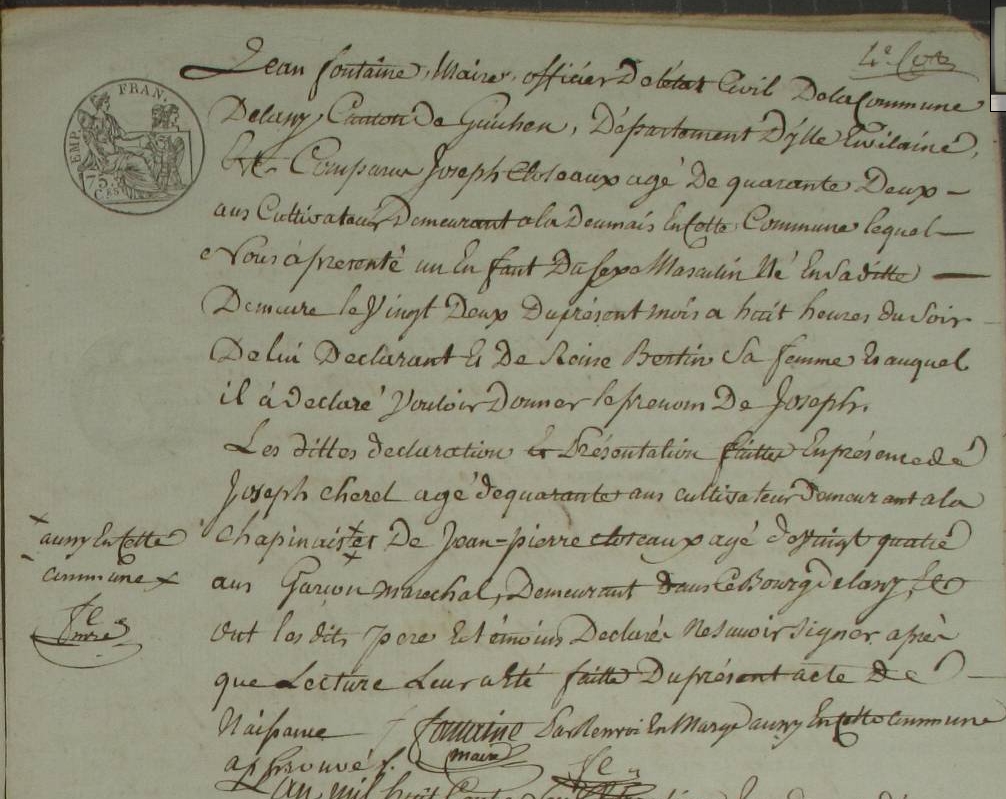 4e
Jean fontaine, Maire, officier De l'état Civil De la Commune
De lassy, Canton de Guichen, Département D'ylle Et vilaine,
Est Comparu Joseph Closeaux agé De quarante Deux
ans Cultivateur Demeurant a la Deumais En Cette Commune lequel
Nous à présenté un Enfant Du sexe Masculin Né En sa ditte
Demeure le Vingt Deux Du présent mois a huit heures du Soir
De lui Declarant Et De Reine Bertin Sa femme Et auquel
il à declaré Vouloir Donner le prenom De Joseph.
Les dittes declaration Et Présentation faittes En présence de
Joseph cherel agé de quarante ans cultivateur Demeurant a la
chapinais Et De Jean-pierre closeaux agé de Vingt quatre
ans Garçon marechal, Demeurant dans Ce Bourg De lassy, Et
ont les dits pere Et témoins Declaré Ne Savoir Signer après
que Lecture Leur a Eté faitte Du présent acte De
Naissance
fontaine Par Renvoi En Marge aussy En Cette Commune
approuvé f.
maire
aussy En Cette
Commune
fe
mre
fe
L'an mil huit Cents
EMP. FRAN.
75.